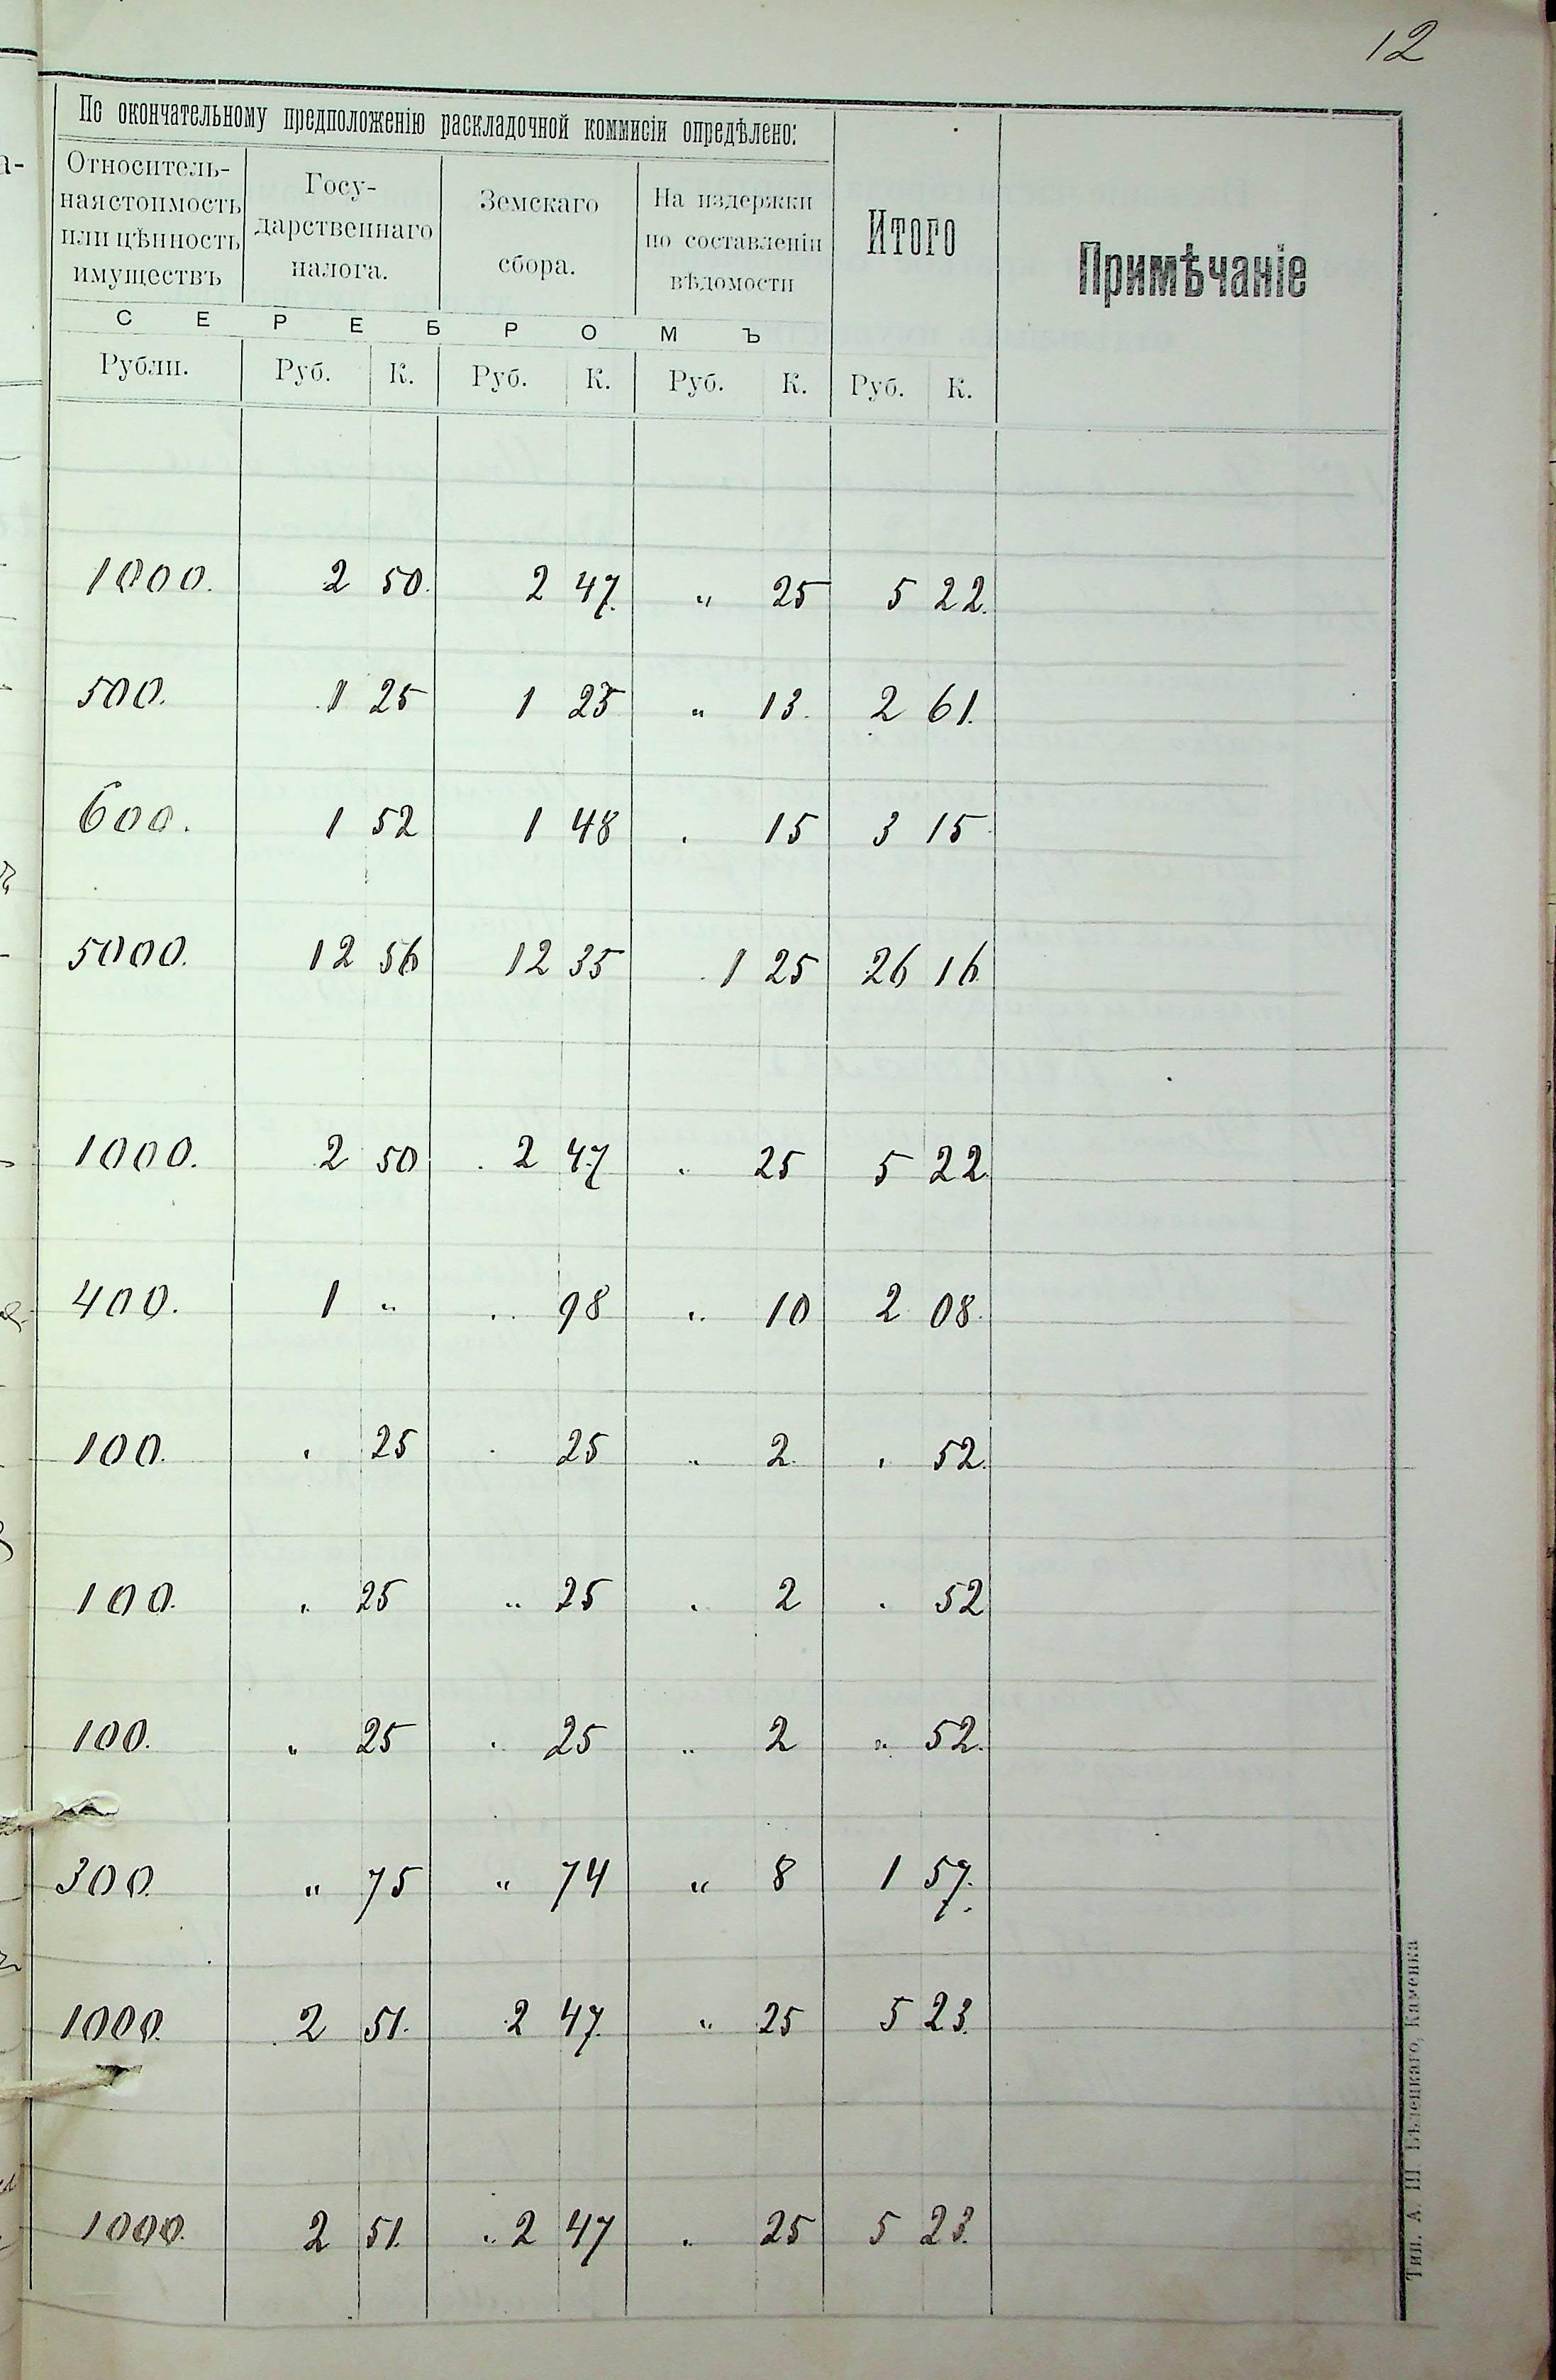 12
По окончательному предположенію раскладочной коммисіи опредѣлено:
Относитель-
ная стоимость
или цѣнность
имуществъ
Госу-
дарственнаго
налога.
Земскаго
сбора.
На издержки
по составленіи
вѣдомости
Итого
Примѣчаніе
СЕРЕБРОМЪ
Рубли. Руб. К. Руб. К. Руб. К. Руб. К.
1000. 2 50. 2 47. " 25 5 22.
500. 1 25 1 23 " 13. 2 61.
600. 1 52 1 48 " 15 3 15
5000. 12 56 12 35 1 25 26 16
1000. 2 50 2 47 " 25 5 22
400. 1 " " 98 " 10 2 08.
100. " 25 " 25 " 2 " 52.
100. " 25 " 25 " 2 " 52
100. " 25 " 25 " 2 " 52.
300. " 75 " 74 " 8 1 57.
1000. 2 51. 2 47. " 25 5 23.
1000. 2 51. " 2 47 " 25 5 23.
Тип. А. Ш. Бѣлецкаго, Каменка